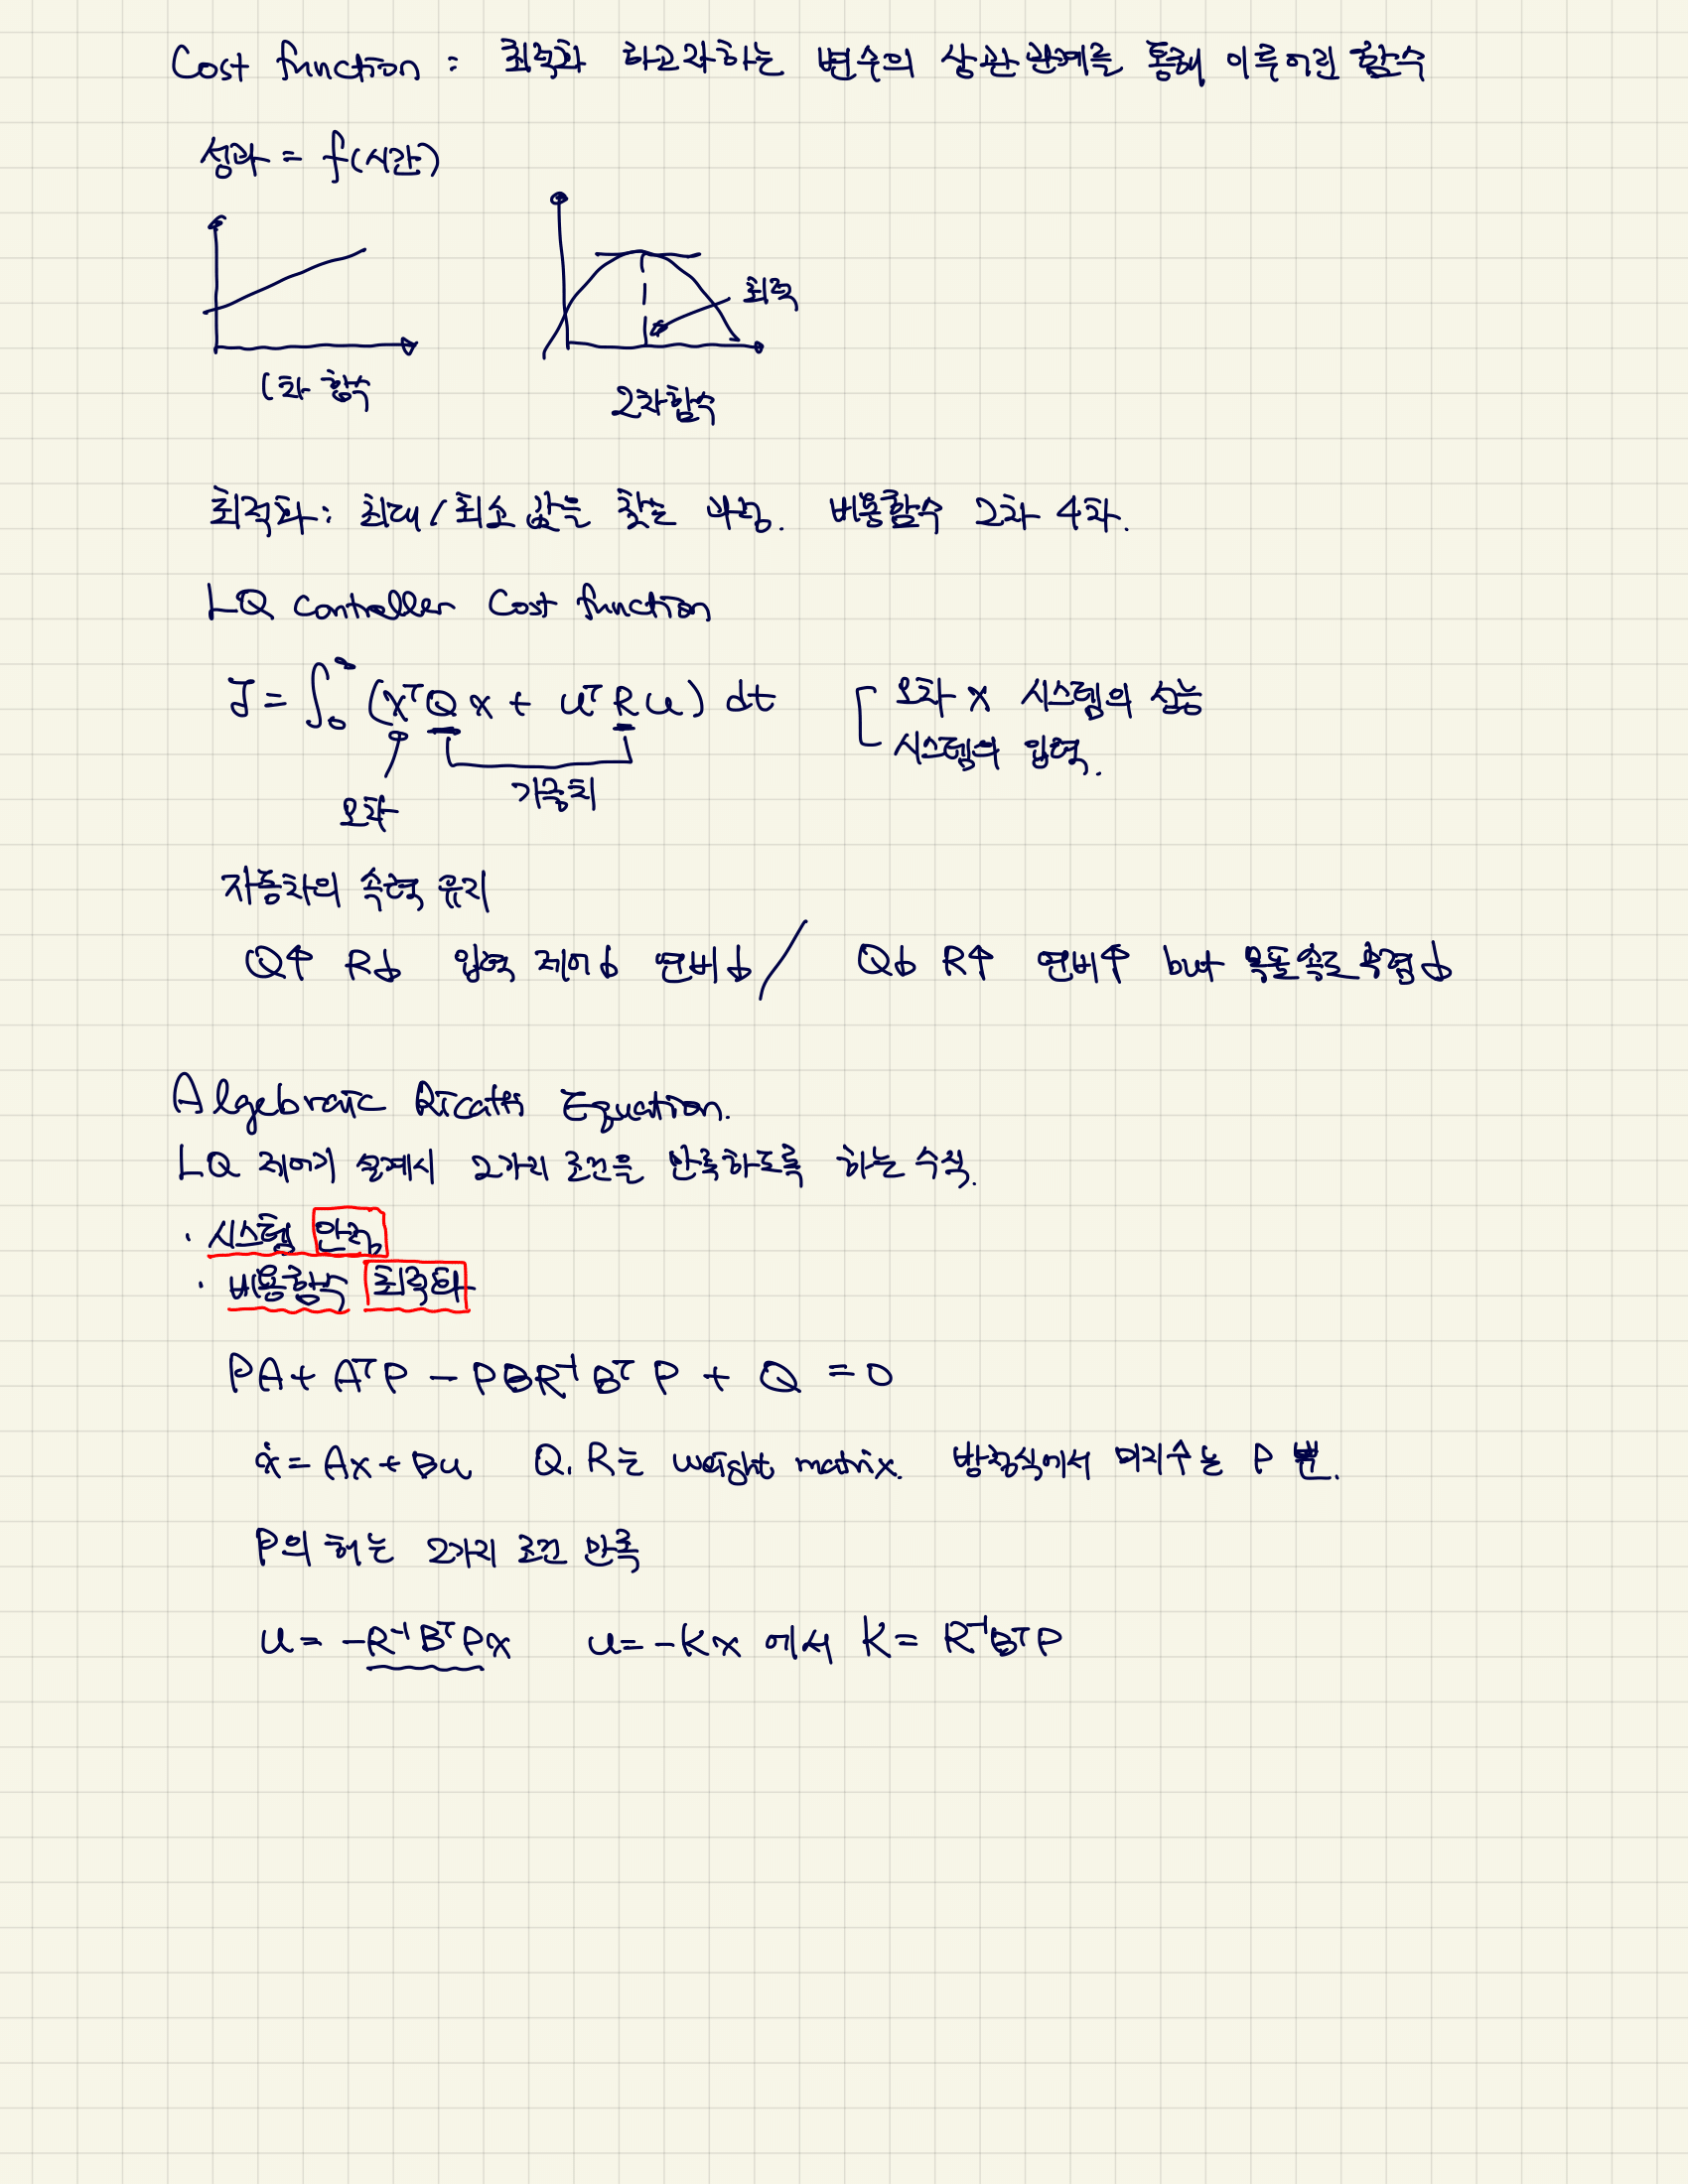 Cost function : 최적화 하고자하는 변수의 상관관계를 통해 이루어진 함수
성과 = f(시간)
최적
1차 함수
2차함수
최적화: 최대/최소 값을 찾는 과정. 비용함수 2차 4차.
LQ Controller Cost function
J = ∫₀^∞ (xᵀQx + uᵀRu) dt
오차 x 시스템의 성능
시스템의 입력.
가중치
오차
자동차의 속력 유지
Q↑ R↓ 입력 제어↓ 연비↓ / Q↓ R↑ 연비↑ but 목표속도 수렴↓
Algebraic Ricatti Equation.
LQ 제어기 설계시 2가지 조건을 만족하도록 하는 수식.
· 시스템 안정
· 비용함수 최적화
PA + AᵀP - PBR⁻¹BᵀP + Q = 0
ẋ = Ax + Bu Q, R는 weight matrix. 방정식에서 미지수는 P 뿐.
P의 해는 2가지 조건 만족
u = -R⁻¹BᵀPx u = -Kx 에서 K = R⁻¹BᵀP